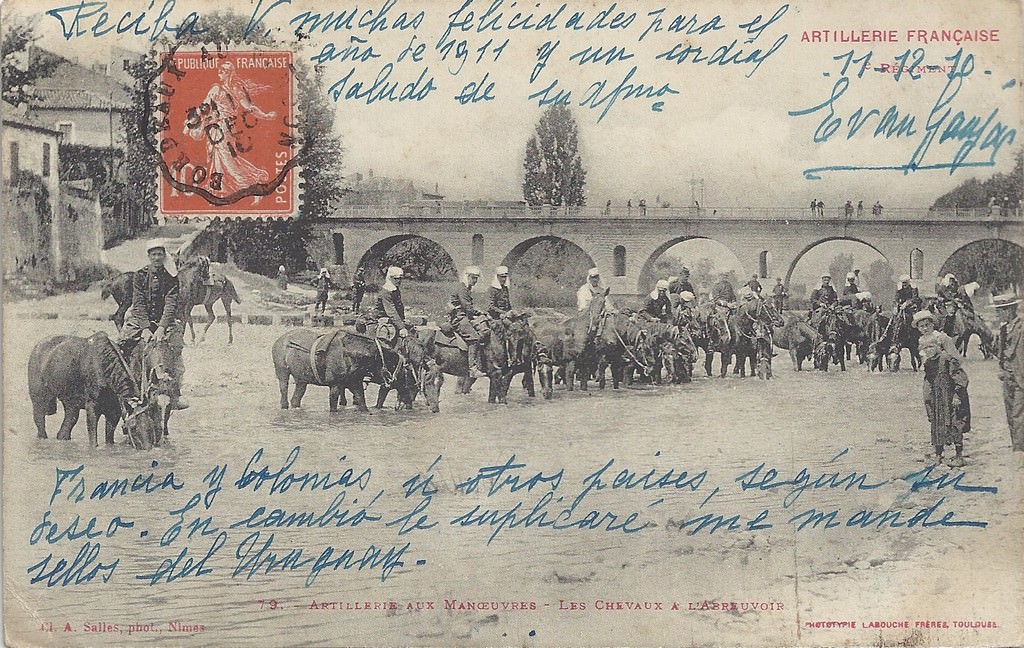 Reciba V. muchas felicidades para el
año de 1911 y un cordial
saludo de su afmo
ARTILLERIE FRANÇAISE
RÉGIMENT
11-12-10.
RÉPUBLIQUE FRANÇAISE
POSTES
10
BORDEAUX
DEC
10
Francia y Colonias, ú otros paises, según su
deseo. En cambio le suplicaré me mande
sellos del Uruguay.
79. - ARTILLERIE AUX MANŒUVRES - LES CHEVAUX A L'ABREUVOIR
Cl. A. Salles, phot., Nimes
PHOTOTYPIE LABOUCHE FRÈRES, TOULOUSE.